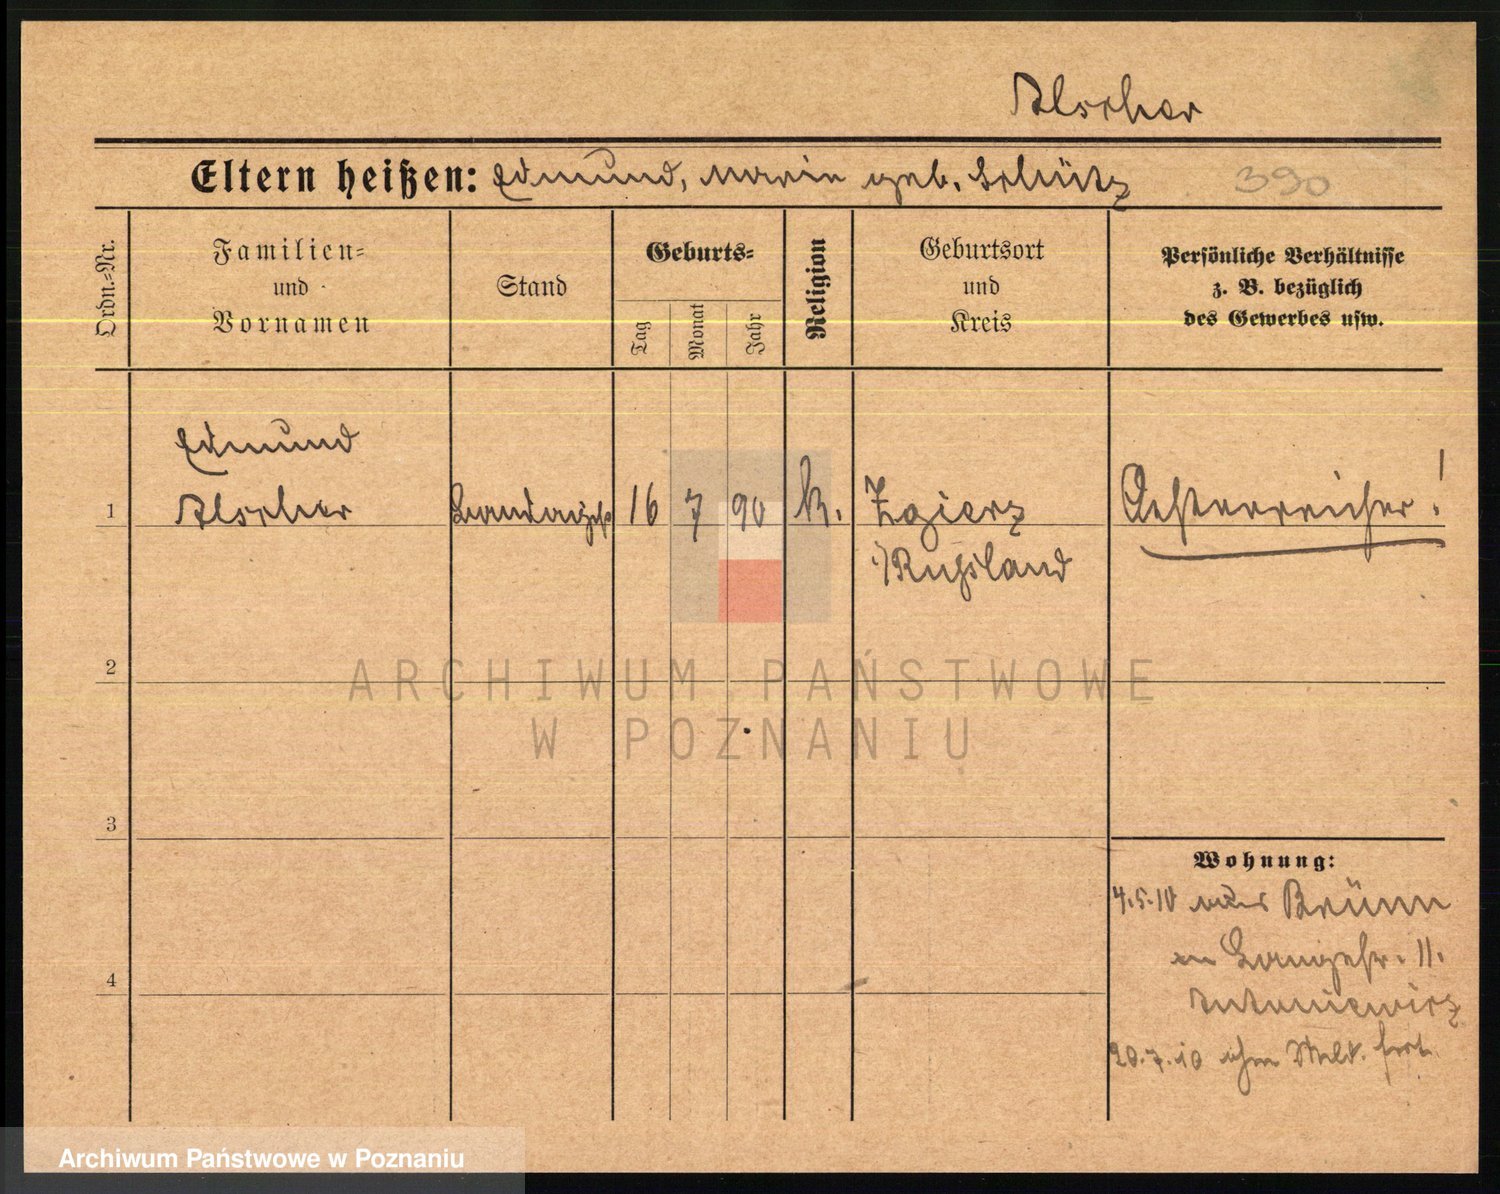 Alscher
Eltern heißen: Edmund, Marie geb. Schütz
390
Ordn.=Nr.
Familien=
und
Vornamen
Stand
Geburts=
Tag
Monat
Jahr
Religion
Geburtsort
und
Kreis
Persönliche Verhältnisse
z. B. bezüglich
des Gewerbes usw.
Edmund
1 Alscher 16 7 90 k. Zgierz Oesterreicher!
i/Russland
2
3
Wohnung:
4.5.10 aus Brünn
Langestr. 11.
4
Antoniewicz
20.7.10 ohne Meld. fort
ARCHIWUM PAŃSTWOWE
W POZNANIU
Archiwum Państwowe w Poznaniu